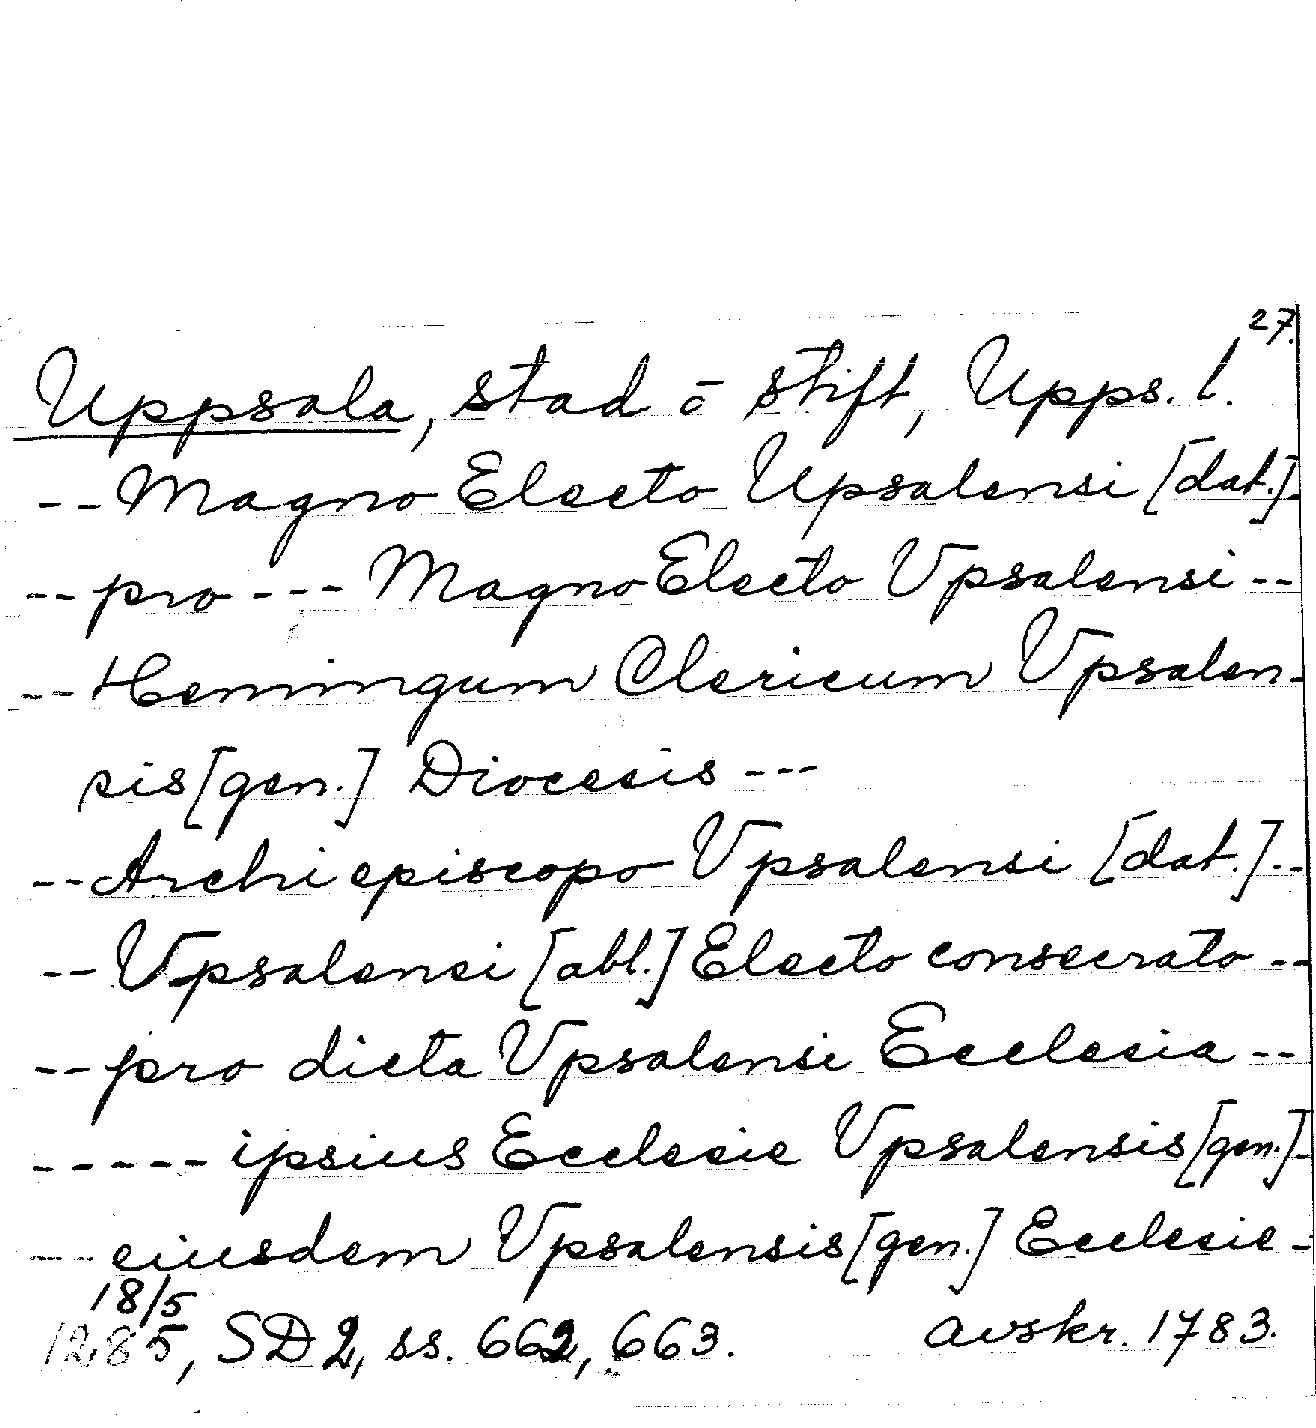 27.
Uppsala, stad o stift, Upps. l.
-- Magno Electo Upsalensi [dat.]
-- pro --- Magno Electo Vpsalensi --
-- Hemingum Clericum Vpsalen-
sis [gen.] Diocesis ---
-- Archi episcopo Vpsalensi [dat.] --
-- Vpsalensi [abl.] Electo consecrato --
-- pro dicta Vpsalensi Ecclesia --
----- ipsius Ecclesie Vpsalensis [gen.] -
-- eiusdem Vpsalensis [gen.] Ecclesie -
18/5
1285, SD 2, ss. 662, 663. avskr. 1783.